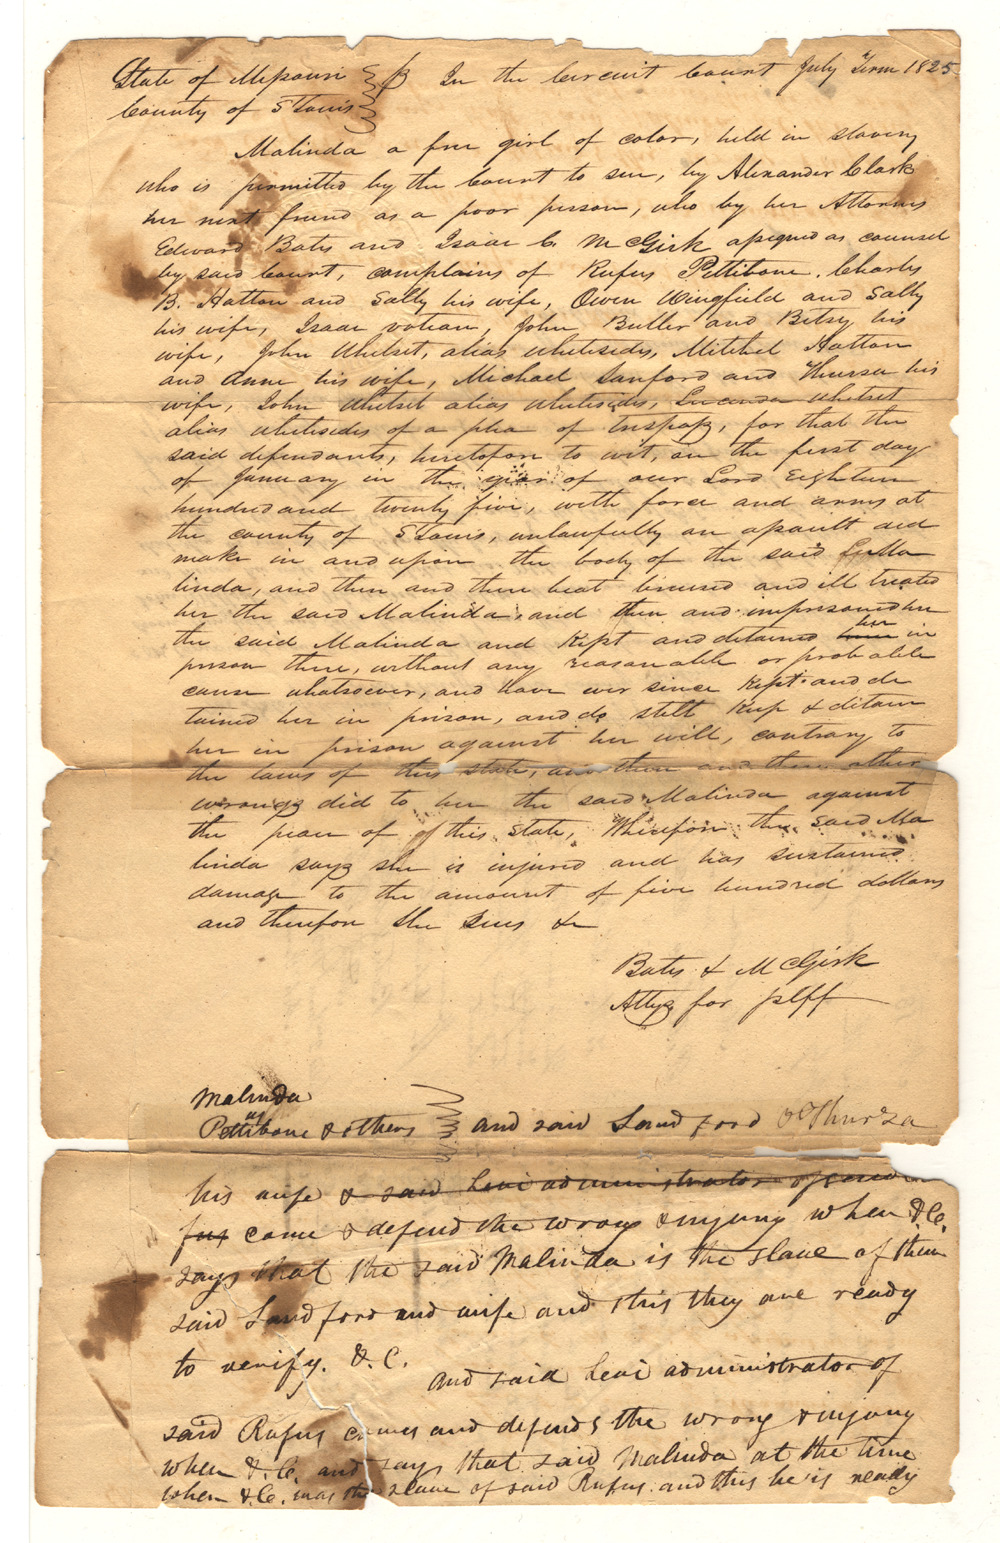 State of Missouri } In the Circuit Court July Term 1825
County of St Louis
Malinda a free girl of color, held in slavery
who is permitted by the Court to sue, by Alexander Clark
her next friend as a poor person, who by her Attornies
Edward Bates and Isaac C. McGirk assigned as counsel
by said Court, complains of Rufus Pettibone, Charles
B. Hatton and Sally his wife, Owen Wingfield and Sally
his wife, Isaac votian, John Butler and Betsy his
wife, John Whitset, alias Whitesides, Mitchel Hatton
and Anne his wife, Michael Sanford and Thursa his
wife, John Whitset alias Whitesides, Lucinda Whitset
alias Whitesides of a plea of trespass, for that the
said defendants, heretofore to wit, on the first day
of January in the year of our Lord Eighteen
hundred and twenty five, with force and arms at
the county of St Louis, unlawfully an assault did
make in and upon the body of the said
linda, and then and there beat bruised and ill treated
her the said Malinda, and then and imprisoned her
the said Malinda and Kept and detained her in
prison there, without any reasonable or probable
cause whatsoever, and have ever since Kept and de
tained her in prison, and do still Keep & detain
her in prison against her will, contrary to
the laws of this state, and then and there other
wrongs did to her the said Malinda against
the peace of of this state, Wherefore the said Ma
linda says she is injured and has sustained
damage to the amount of five hundred dollars
and therefore she sues &c
Bates & McGirk
Attys for plff
Malinda
vs
Pettibone & others } and said Sandford & Thursa
his wife & said Levi administrator of said
fus come & defend the wrong & injury when &C.
says that the said Malinda is the slave of them
said Sandford and wife and this they are ready
to verify. &.C. and said Levi administrator of
said Rufus comes and defends the wrong & injury
when &.C. and says that said Malinda at the time
when &C. was the slave of said Rufus. and this he is ready